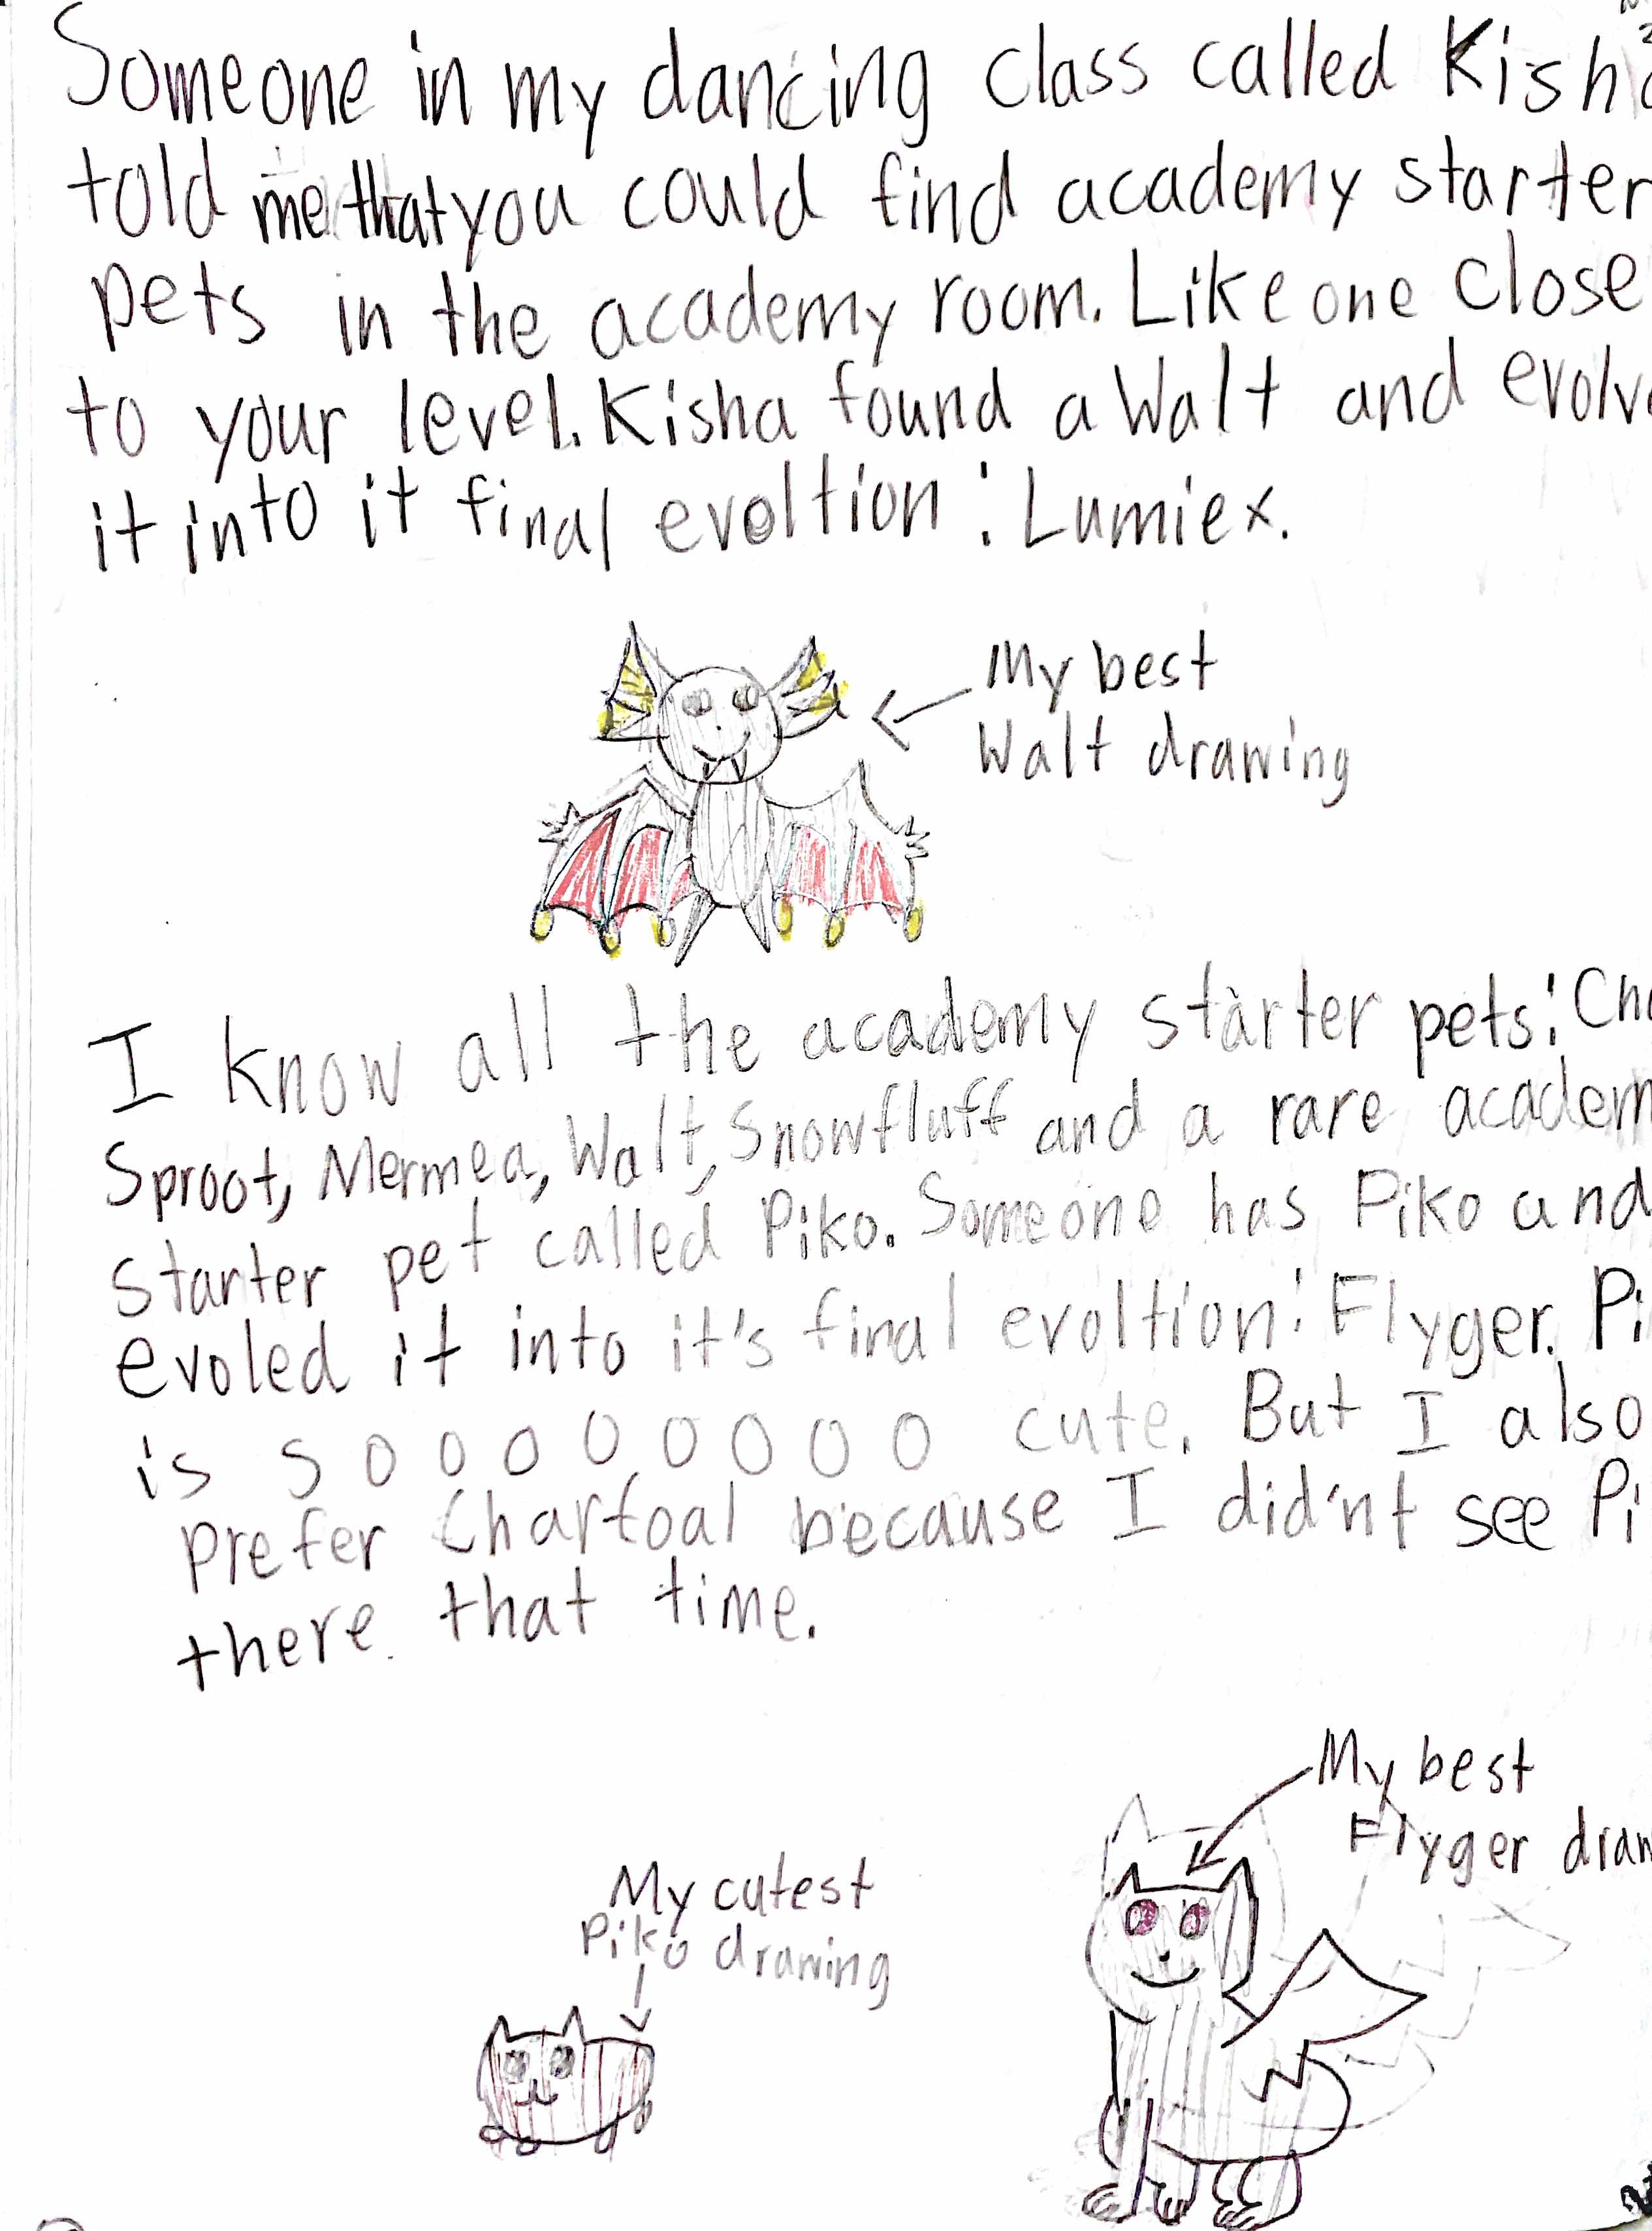 Someone in my dancing class called Kisha
told me that you could find academy starter
pets in the academy room. Like one close
to your level. Kisha found a Walt and evolve
it into it final evoltion : Lumiex.
My best
Walt drawing
I know all the academy starter pets: Cha
Sproot, Mermea, Walt, Snowfluff and a rare academ
starter pet called Piko. Someone has Piko and
evoled it into it's final evoltion: Flyger. Pi
is soooooooo cute. But I also
prefer Charfoal because I did'nt see Pi
there that time.
My best
Flyger draw
My cutest
Piko drawing